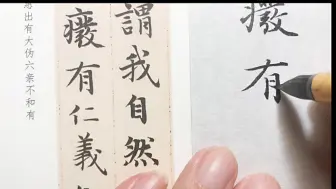 癈有
謂我自然
癈有仁義
慧出有大伪六亲不和有